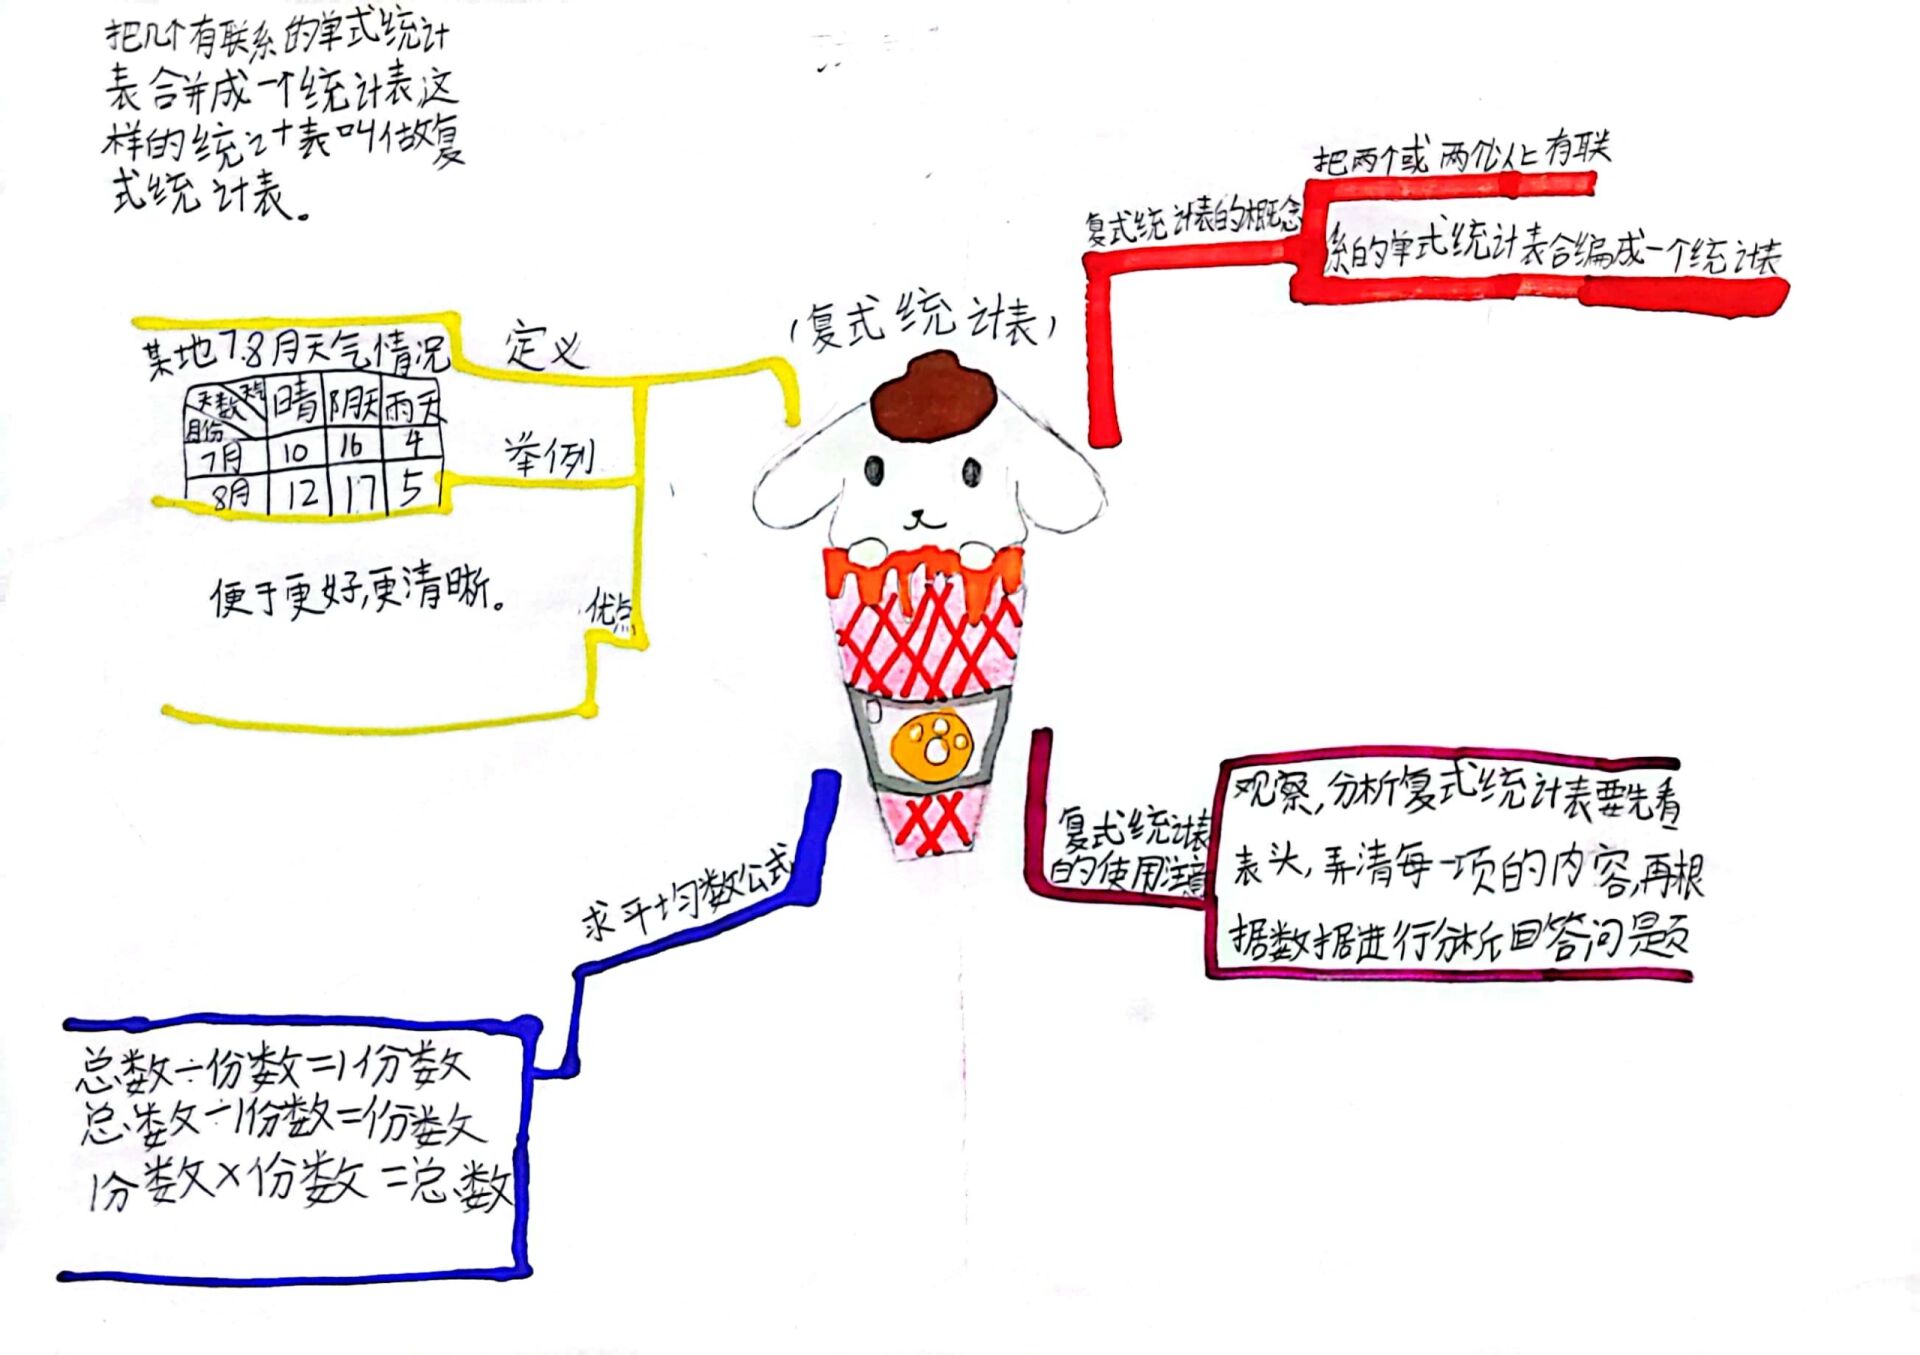 把几个有联系的单式统计
表合并成一个统计表这
样的统计表叫做复
式统计表。
(复式统计表)
定义
某地7.8月天气情况
天气
天数
月份
晴 阴天 雨天
7月 10 16 4
8月 12 17 5
举例
便于更好,更清晰。
优点
求平均数公式
总数÷份数=1份数
总数÷1份数=份数
1分数×份数=总数
复式统计表的概念
把两个或两个以上有联
系的单式统计表合编成一个统计表
复式统计表
的使用注意
观察,分析复式统计表要先看
表头,弄清每一项的内容,再根
据数据进行分析回答问题